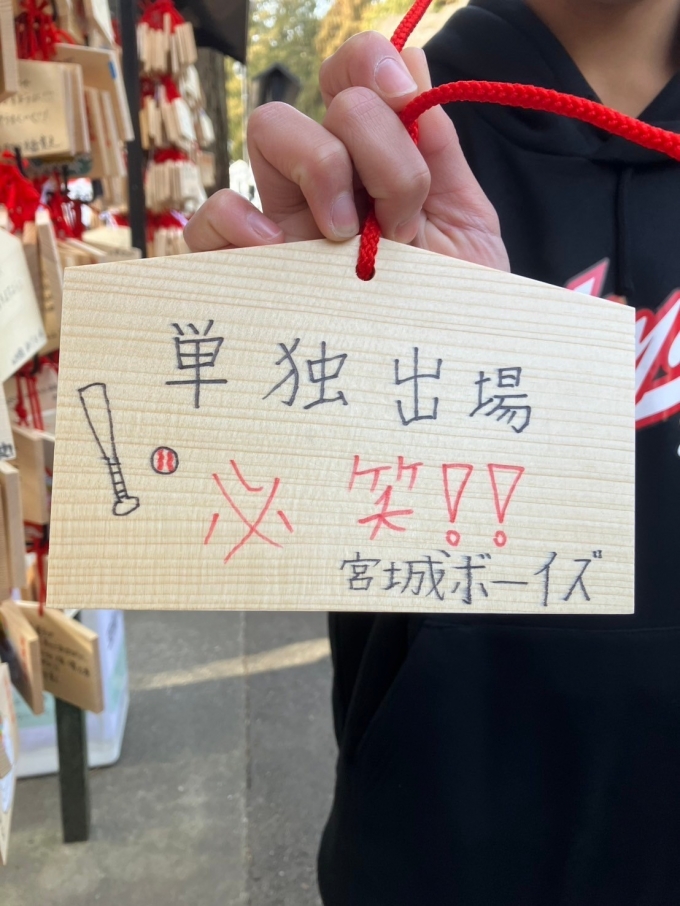 単独出場
必笑!!
宮城ボーイズ